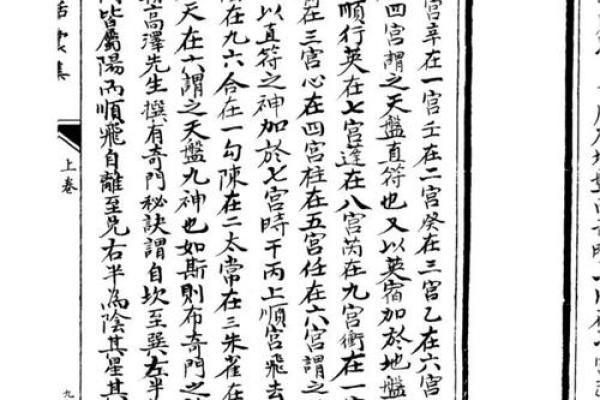 宮辛在一宮壬在二宮癸在三宮乙在六宮
四宮謂之天盤直符也又以英宿加於地盤
順行英在七宮蓬在八宮芮在九宮衝在一
在三宮心在四宮柱在五宮任在六宮謂之
以直符之神加於七宮時干丙上順宮飛去
在九六合在一勾陳在二太常在三朱雀在
天在六謂之天盤九神也如斯則布奇門之
高澤先生撰有奇門秘訣謂自坎至巽左半
皆屬陽而順飛自離至兌右半為陰其星其
集
上卷
九